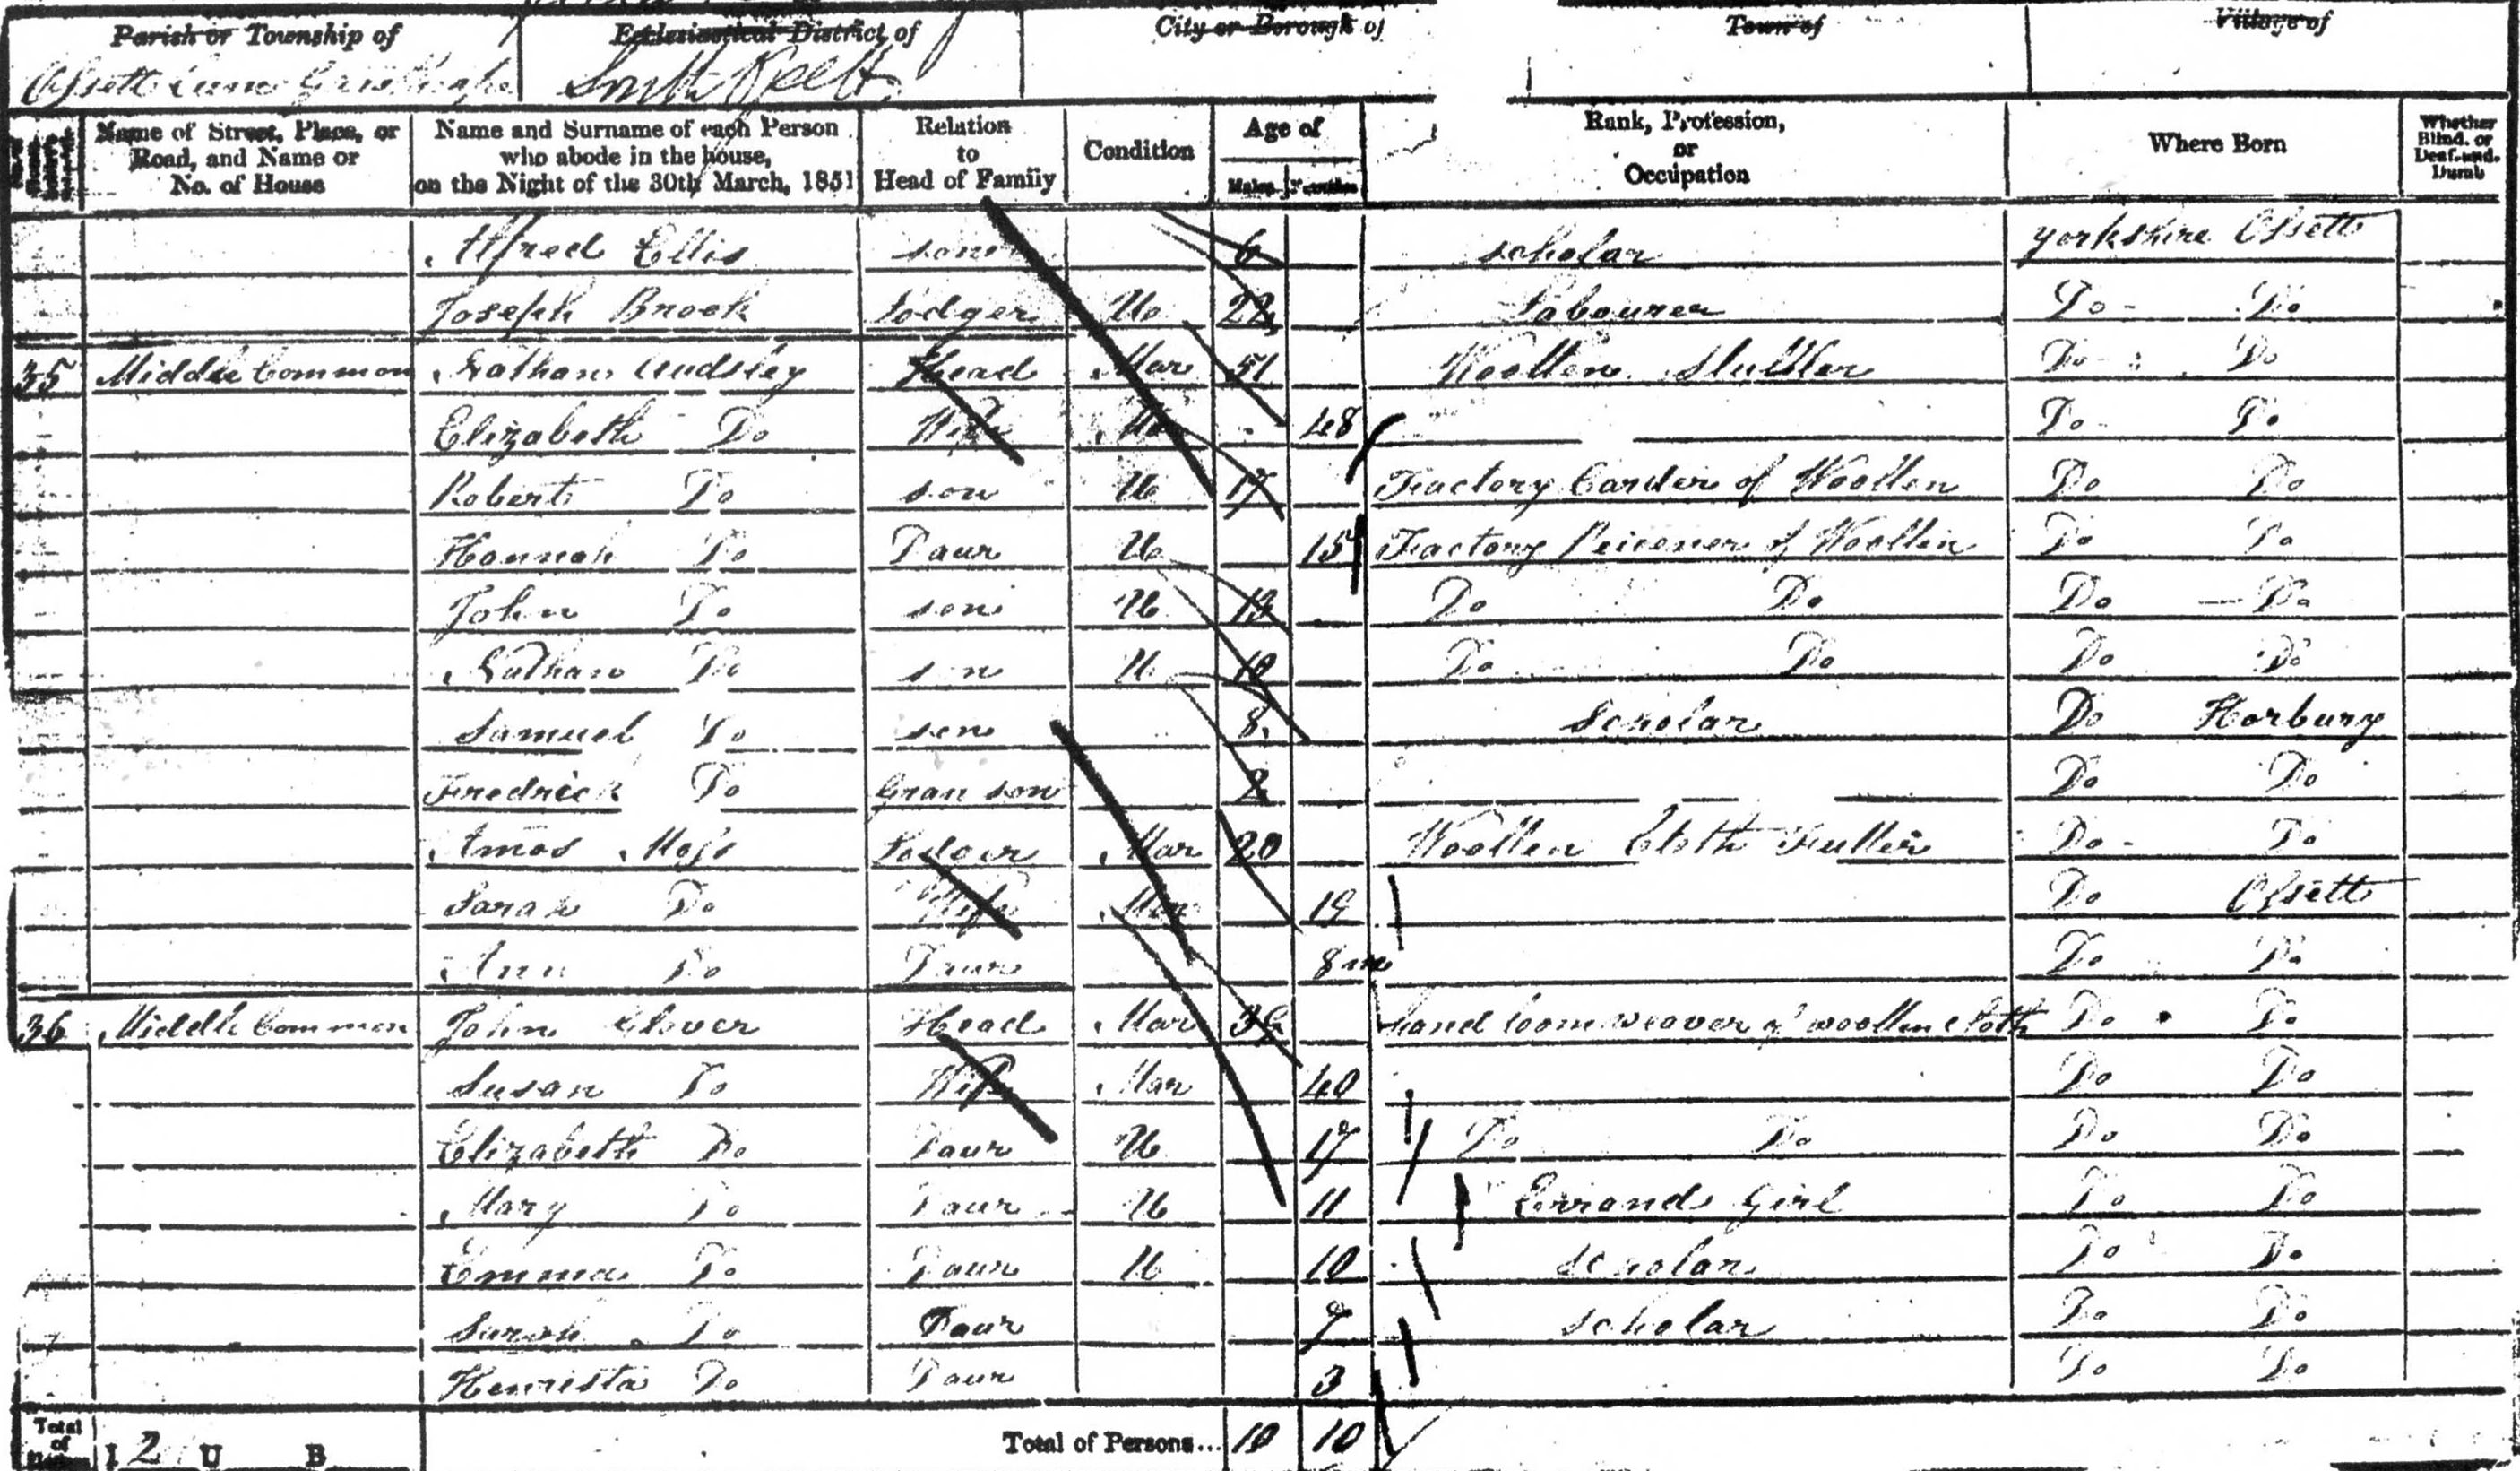 Parish or Township of Ecclesiastical District of City or Borough of Town of Village of
Ossett cum Gawthorpe South Ossett
Name of Street, Place, or Road, and Name or No. of House Name and Surname of each Person who abode in the house, on the Night of the 30th March, 1851 Relation to Head of Family Condition Age of Males Females Rank, Profession, or Occupation Where Born Whether Blind, or Deaf-and-Dumb
Alfred Ellis son 6 scholar Yorkshire Ossett
Joseph Brook Lodger U 22 Labourer Do Do
35 Middle Common Nathan Audsley Head Mar 51 Woollen Slubber Do Do
Elizabeth Do Wife Mar 48 Do Do
Robert Do son U 17 Factory Carder of Woollen Do Do
Hannah Do Daur U 15 Factory Peicener of Woollen Do Do
John Do son U 13 Do Do Do Do
Nathan Do son U 10 Do Do Do Do
Samuel Do son 8 Scholar Do Horbury
Fredrick Do Gran son 2 Do Do
Amos Moss Mar 20 Woollen Cloth Fuller Do Do
Sarah Do Wife Mar 19 Do Ossett
Ann Do Daur 8 m Do Do
36 Middle Common John Glover Head Mar 36 hand loom weaver of woollen cloth Do Do
Susan Do Wife Mar 40 Do Do
Elizabeth Do Daur U 17 Do Do Do Do
Mary Do Daur U 11 Errand Girl Do Do
Emma Do Daur U 10 Scholar Do Do
Sarah Do Daur 7 scholar Do Do
Henrista Do Daur 3 Do Do
Total of I 2 U B Total of Persons... 10 10